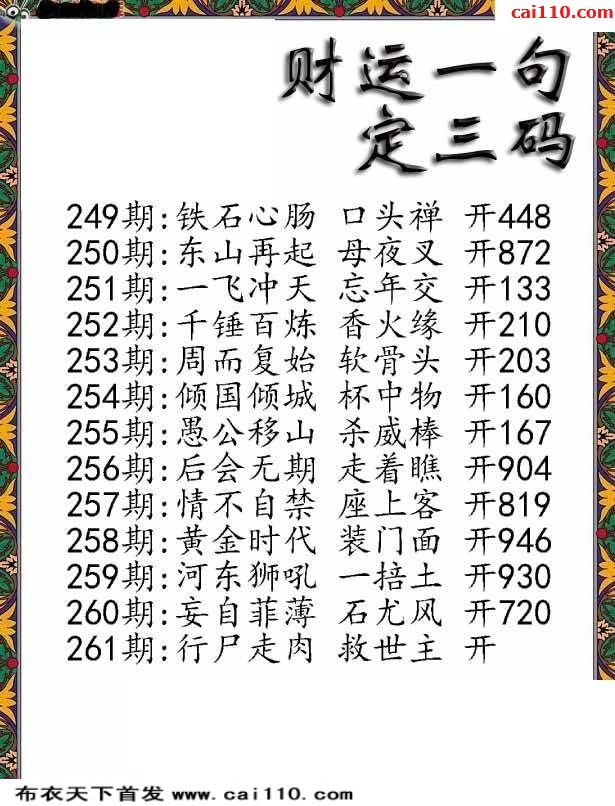 cai110.com
财运一句
定三码
249期:铁石心肠 口头禅 开448
250期:东山再起 母夜叉 开872
251期:一飞冲天 忘年交 开133
252期:千锤百炼 香火缘 开210
253期:周而复始 软骨头 开203
254期:倾国倾城 杯中物 开160
255期:愚公移山 杀威棒 开167
256期:后会无期 走着瞧 开904
257期:情不自禁 座上客 开819
258期:黄金时代 装门面 开946
259期:河东狮吼 一掊土 开930
260期:妄自菲薄 石尤风 开720
261期:行尸走肉 救世主 开
布衣天下首发 www.cai110.com